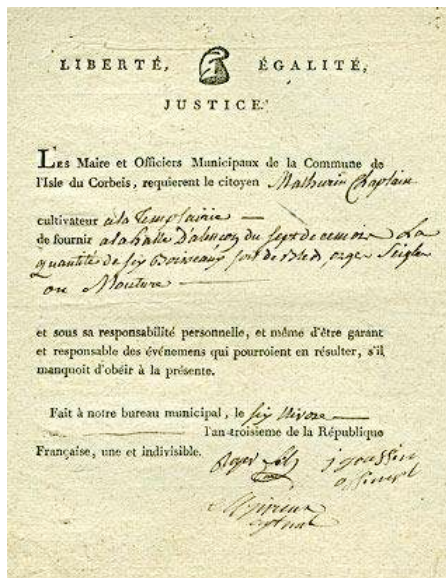 LIBERTÉ, ÉGALITÉ,
JUSTICE.
LES Maire et Officiers Municipaux de la Commune de
l'Isle du Corbeis, requierent le citoyen Mathurin Chaplain
cultivateur à la Templairie
de fournir a la halle D'alencon du sept de ce mois La
quantité de six Boisseaux soit de Bled, orge, Seigle
ou Mouture
et sous sa responsabilité personnelle, et même d'être garant
et responsable des événemens qui pourroient en résulter, s'il
manquoit d'obéir à la présente.
Fait à notre bureau municipal, le six Nivose
l'an troisieme de la République
Française, une et indivisible.
Roger